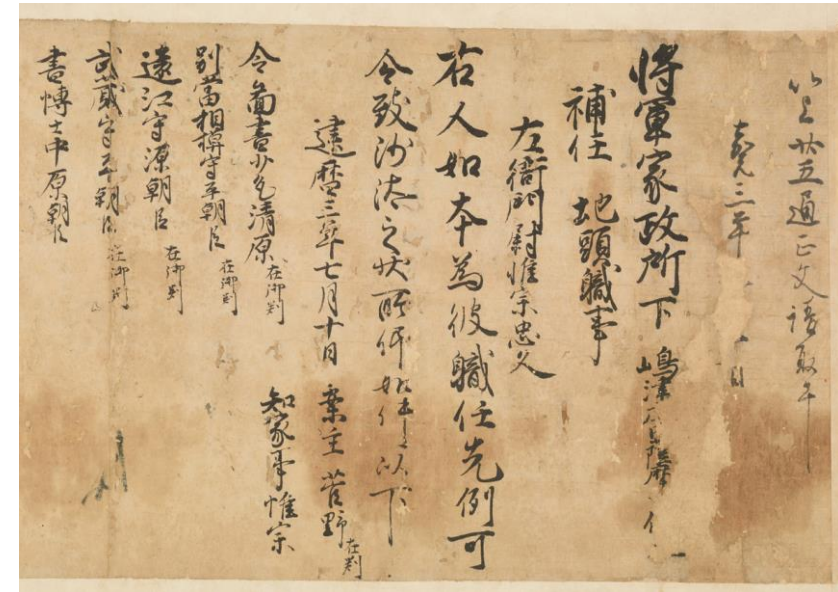 以上廿五通正文請取了
嘉元三年 十 日
將軍家政所下 嶋津
補任 地頭職事
左衛門尉惟宗忠久
右人如本為彼職任先例可
令致沙汰之状所仰如件以下
建暦三年七月十日 案主 菅野在判
令圖書少允清原在御判 知家事惟宗
別當相模守平朝臣在御判
遠江守源朝臣 在御判
武蔵守平朝臣 在御判
書博士中原朝臣